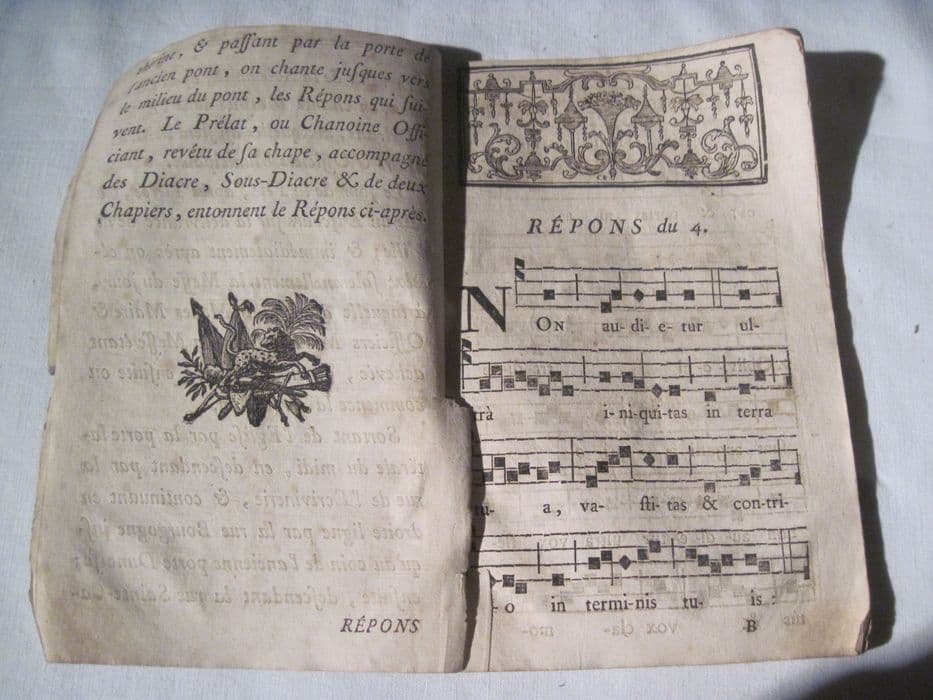 therine, & paſſant par la porte de
l'ancien pont, on chante juſques vers
le milieu du pont, les Répons qui ſui-
vent. Le Prélat, ou Chanoine Offi-
ciant, revétu de ſa chape, accompagné
des Diacre, Sous-Diacre & de deux
Chapiers, entonnent le Répons ci-après.
RÉPONS
RÉPONS du 4.
NON au-di-e-tur ul-
trà i-ni-qui-tas in terra
tu- a, va- ſti-tas & con-tri-
-o in termi-nis tu- is:
B